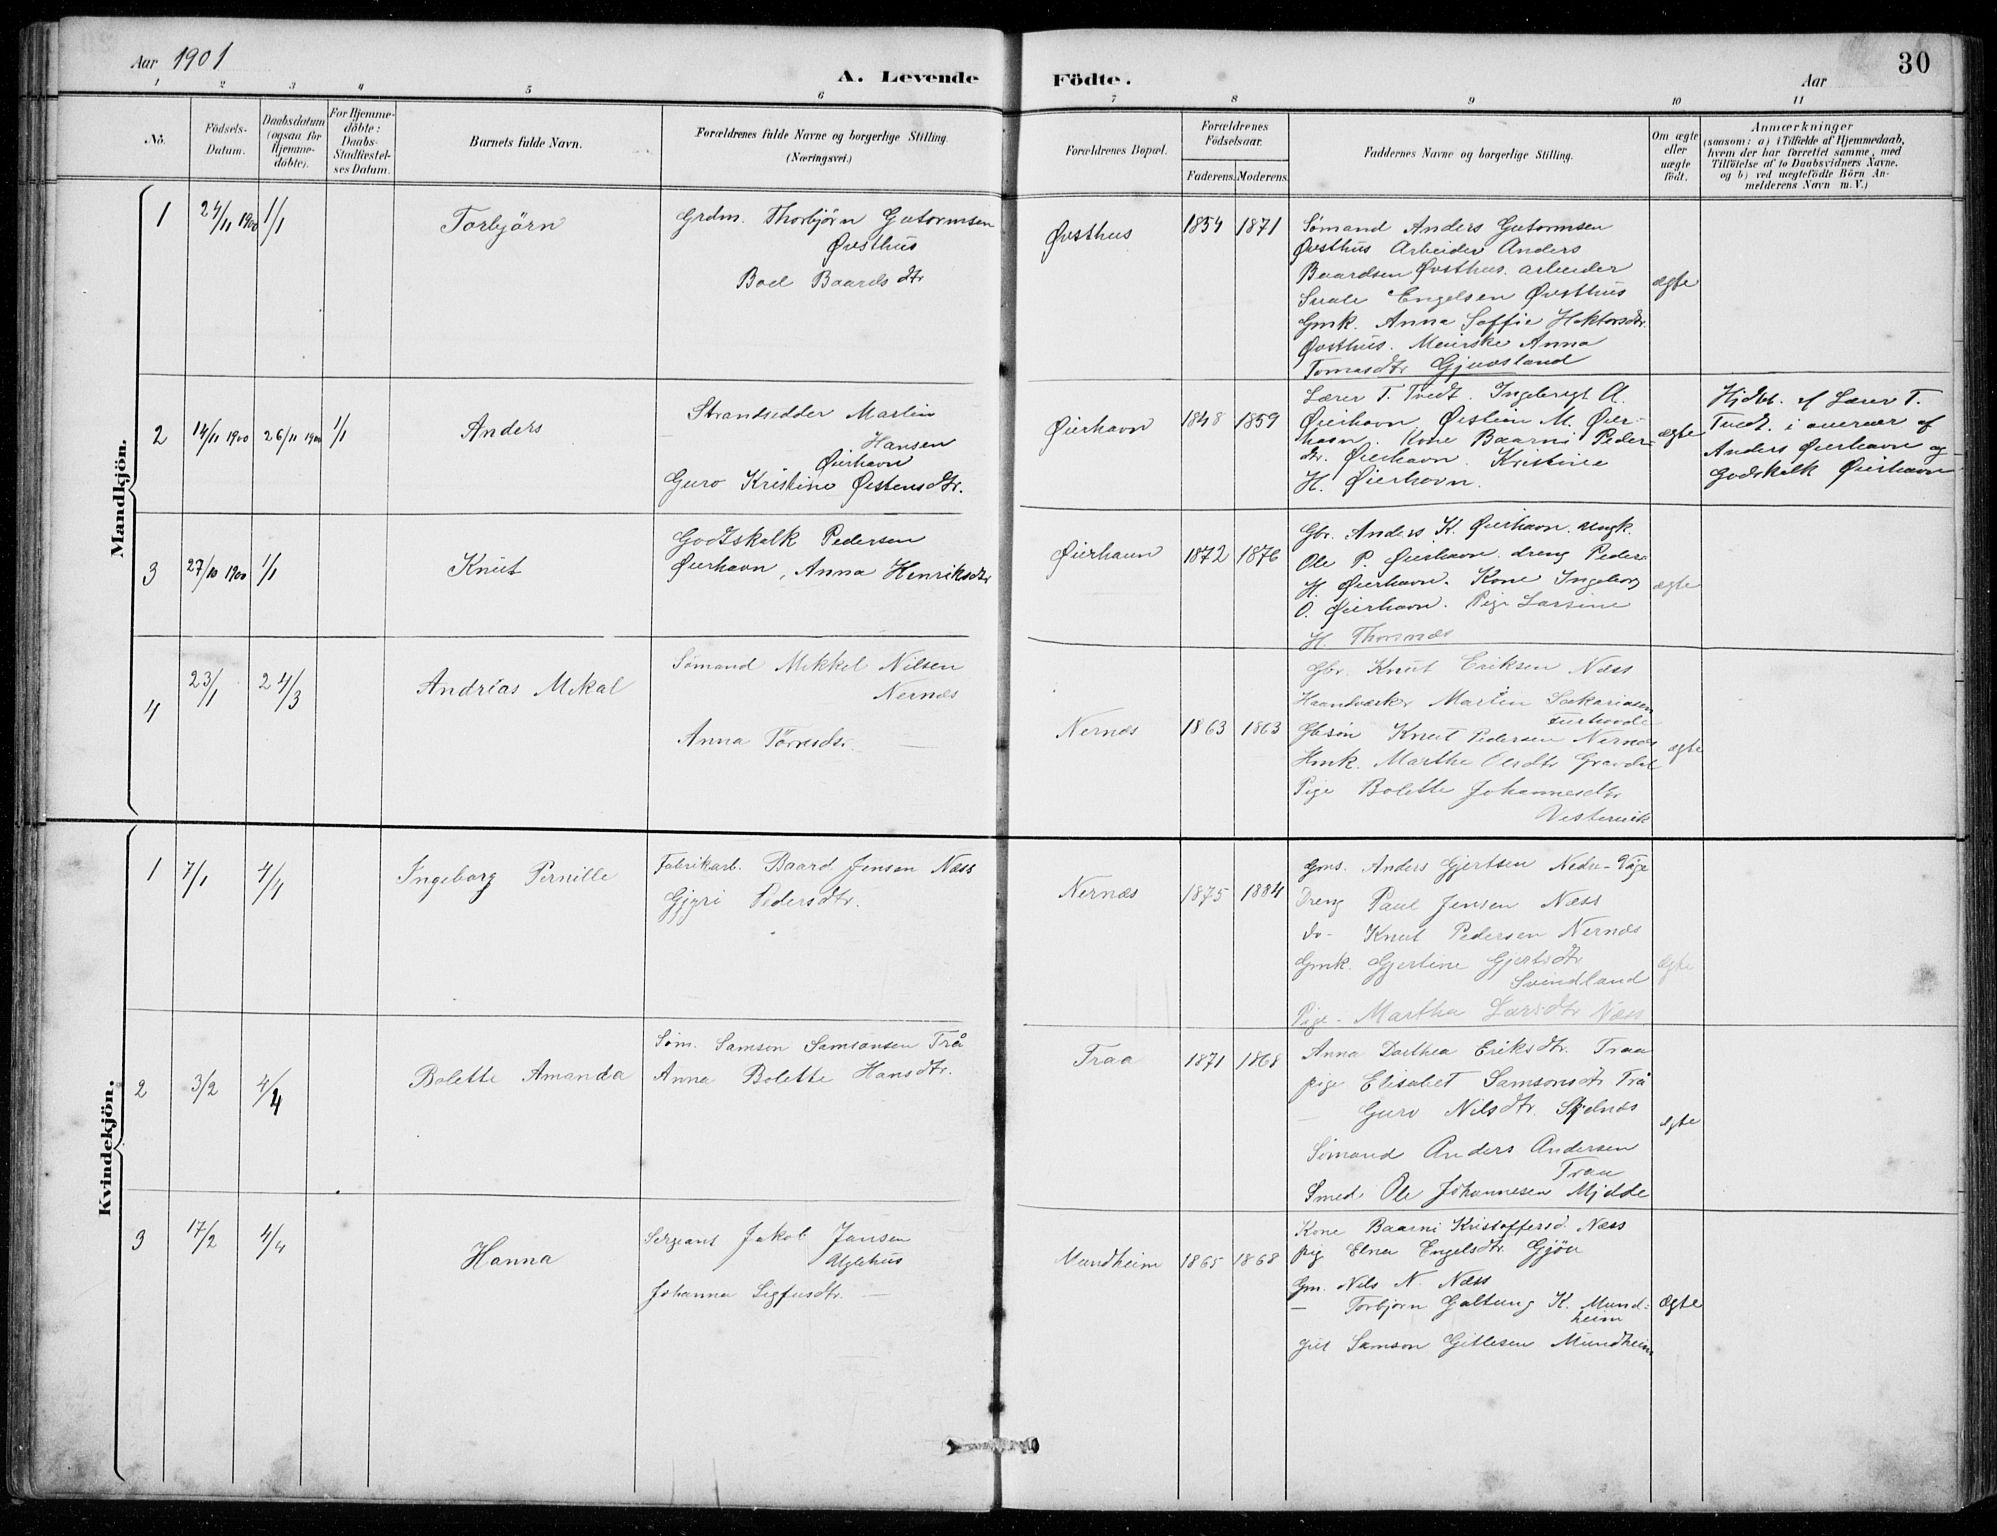 Aar 1901
A. Levende Födte.
Aar
30
1 2 3 4 5 6 7 8 9 10 11
No.
Födsels-
Datum.
Daabsdatum
(ogsaa for
Hjemme-
döbte).
For Hjemme-
döbte:
Daabs-
Stadfæstel-
ses Datum.
Barnets fulde Navn.
Forældrenes fulde Navne og borgerlige Stilling.
(Næringsvei.)
Forældrenes Bopæl.
Forældrenes
Födselsaar.
Faderens. Moderens.
Faddernes Navne og borgerlige Stilling.
Om ægte
eller
uægte
födt.
Anmærkninger
(saasom: a) i Tilfælde af Hjemmedaab,
hvem der har forrettet samme, med
Tilföielse af to Daabsvidners Navne.
og b) ved uægtefödte Börn An-
melderens Navn m. V.)
Mandkjön.
1
24/11 1900
1/1
Torbjörn
Grdm. Thorbjörn Gutormsen
Øvsthus
Boel Baardsdtr
Øvsthus
1854
1871
Sømand Anders Gutormsen
Øvsthus Arbeider Anders
Baardsen Øvsthus. arbeider
Engelsen Øvsthus
Gmk. Anna Soffie Haktorsdtr.
Øvsthus. Meierske Anna
Tomasdtr Gjuvsland
ægte
2
14/11 1900
26/11 1900
1/1
Anders
Strandsedder Martin
Hansen
Øierhavn
Guro Kristine Østensdtr.
Øierhavn
1848
1859
Lærer T. Tvedt. Ingebrigt A.
Øierhavn, Østein M. Øier-
havn. Kone Baarni Peder-
dtr. Øierhavn. Kristine
H. Øierhavn.
ægte
Hjdbt. af Lærer T.
Tvedt. i overvær af
Anders Øierhavn og
Godskalk Øierhavn
3
27/10 1900
1/1
Knut
Godtskalk Pedersen
Øierhavn, Anna Henriksdtr
Øierhavn
1872
1876
Gbr. Anders K. Øierhavn. ungk.
Ole P. Øierhavn. dreng Peder
H. Øierhavn. Kone Ingeborg
O. Øierhavn. Pige Larsine
H. Thorsnæs
ægte
4
23/1
24/3
Andrias Mikal
Sømand Mikkel Nilsen
Nernæs
Anna Tørresdtr. —
Nernæs
1863
1863
Gbr. Knut Eriksen Næss
Haandværker Martin Sakariasen
Furhovde
Gbsøn Knut Pedersen Nernæs
Hmk. Marthe Olsdtr Gravdal
Pige Bolette Johannesdtr
Vestervik
ægte
Kvindekjön.
1
7/1
4/4
Ingeborg Pernille
Fabrikarb. Baard Jensen Næss
Gjyri Pedersdtr.
Nernæs
1875
1884
Gms. Anders Gjertsen Nedre-Våge
Dreng Paul Jensen Næss
do- Knut Pedersen Nernæs
Gmk. Gjertine Gjertsdtr
Svindland
Pige - Martha Larsdtr Næss
ægte
2
3/2
4/4
Bolette Amanda
Søm. Samson Samsonsen Trå
Anna Bolette Hansdtr.
Traa
1871
1868
Anna Dorthea Eriksdtr. Traa
pige Elisabet Samsonsdtr Trå
— Guro Nilsdtr Skjelnæs
Sømand Anders Andersen
Traa
Smed. Ole Johannesen Mjdde
ægte
3
17/2
4/4
Hanna
Sergeant Jakob Jansen
Uglehus
Johanna Sigfusdtr. —
Mundheim
1865
1868
Kone Baarni Kristoffersd. Næss
pig Elna Engelsdtr Gjøn
Gm. Nils N. Næss
— Torbjørn Galtung K. Mund-
heim
Samson Gitlesen Mundheim
Ægte